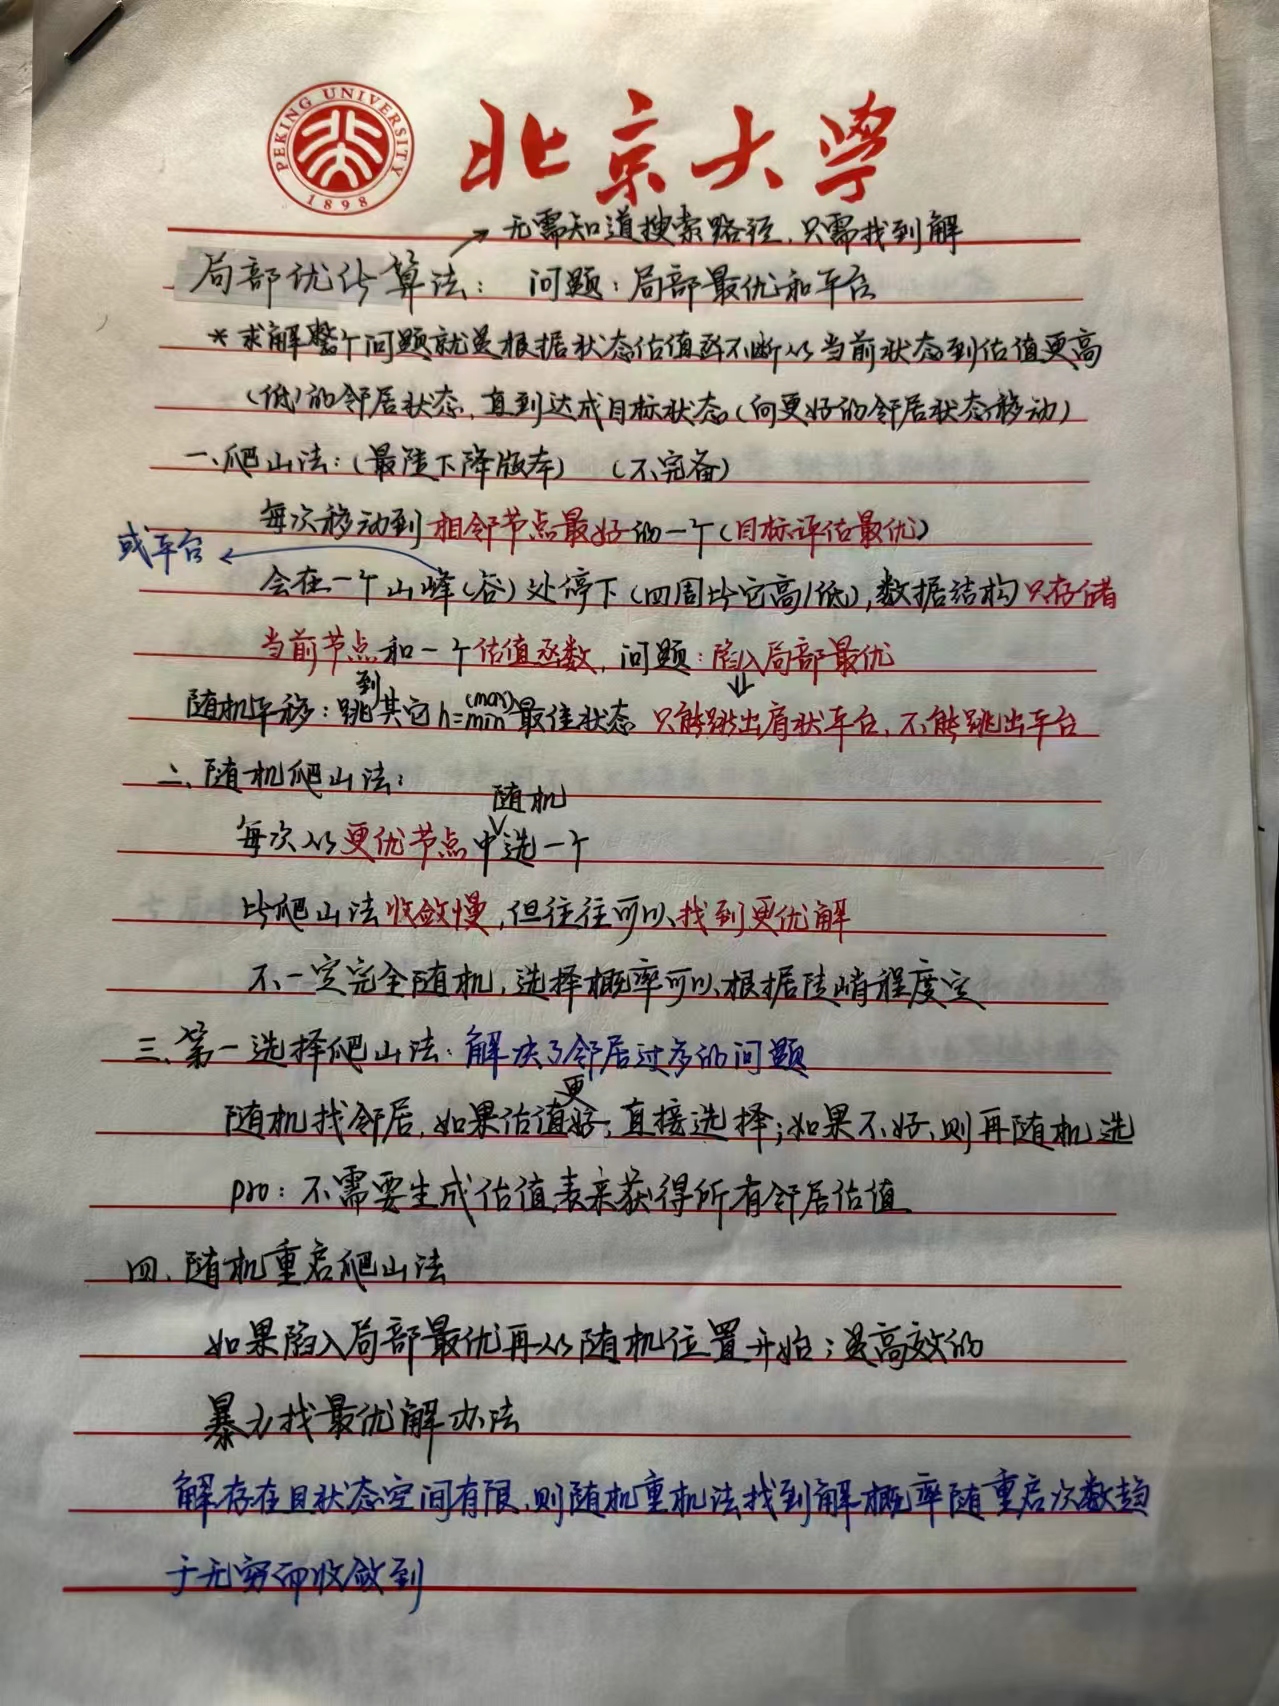 PEKING UNIVERSITY
1898
北京大学
→ 无需知道搜索路径，只需找到解
局部优化算法： 问题：局部最优和平台
*求解整个问题就是根据状态估值函不断从当前状态到估值更高
(低)的邻居状态，直到达成目标状态(向更好的邻居状态移动)
一、爬山法：(最陡下降版本) (不完备)
每次移动到相邻节点最好的一个(目标评估最优)
或平台
会在一个山峰(谷)处停下(四周比它高/低)，数据结构只存储
当前节点和一个估值函数，问题：陷入局部最优
随机平移：跳到其它h=min(max)最佳状态 只能跳出肩状平台，不能跳出平台
二、随机爬山法：
每次从更优节点中随机选一个
比爬山法收敛慢，但往往可以找到更优解
不一定完全随机，选择概率可以根据陡峭程度定
三、第一选择爬山法：解决了邻居过多的问题
随机找邻居，如果估值更好，直接选择；如果不好，则再随机选
pro：不需要生成估值表来获得所有邻居估值
四、随机重启爬山法
如果陷入局部最优再从随机位置开始；是高效的
暴力找最优解办法
解存在且状态空间有限，则随机重机法找到解概率随重启次数趋
于无穷而收敛到